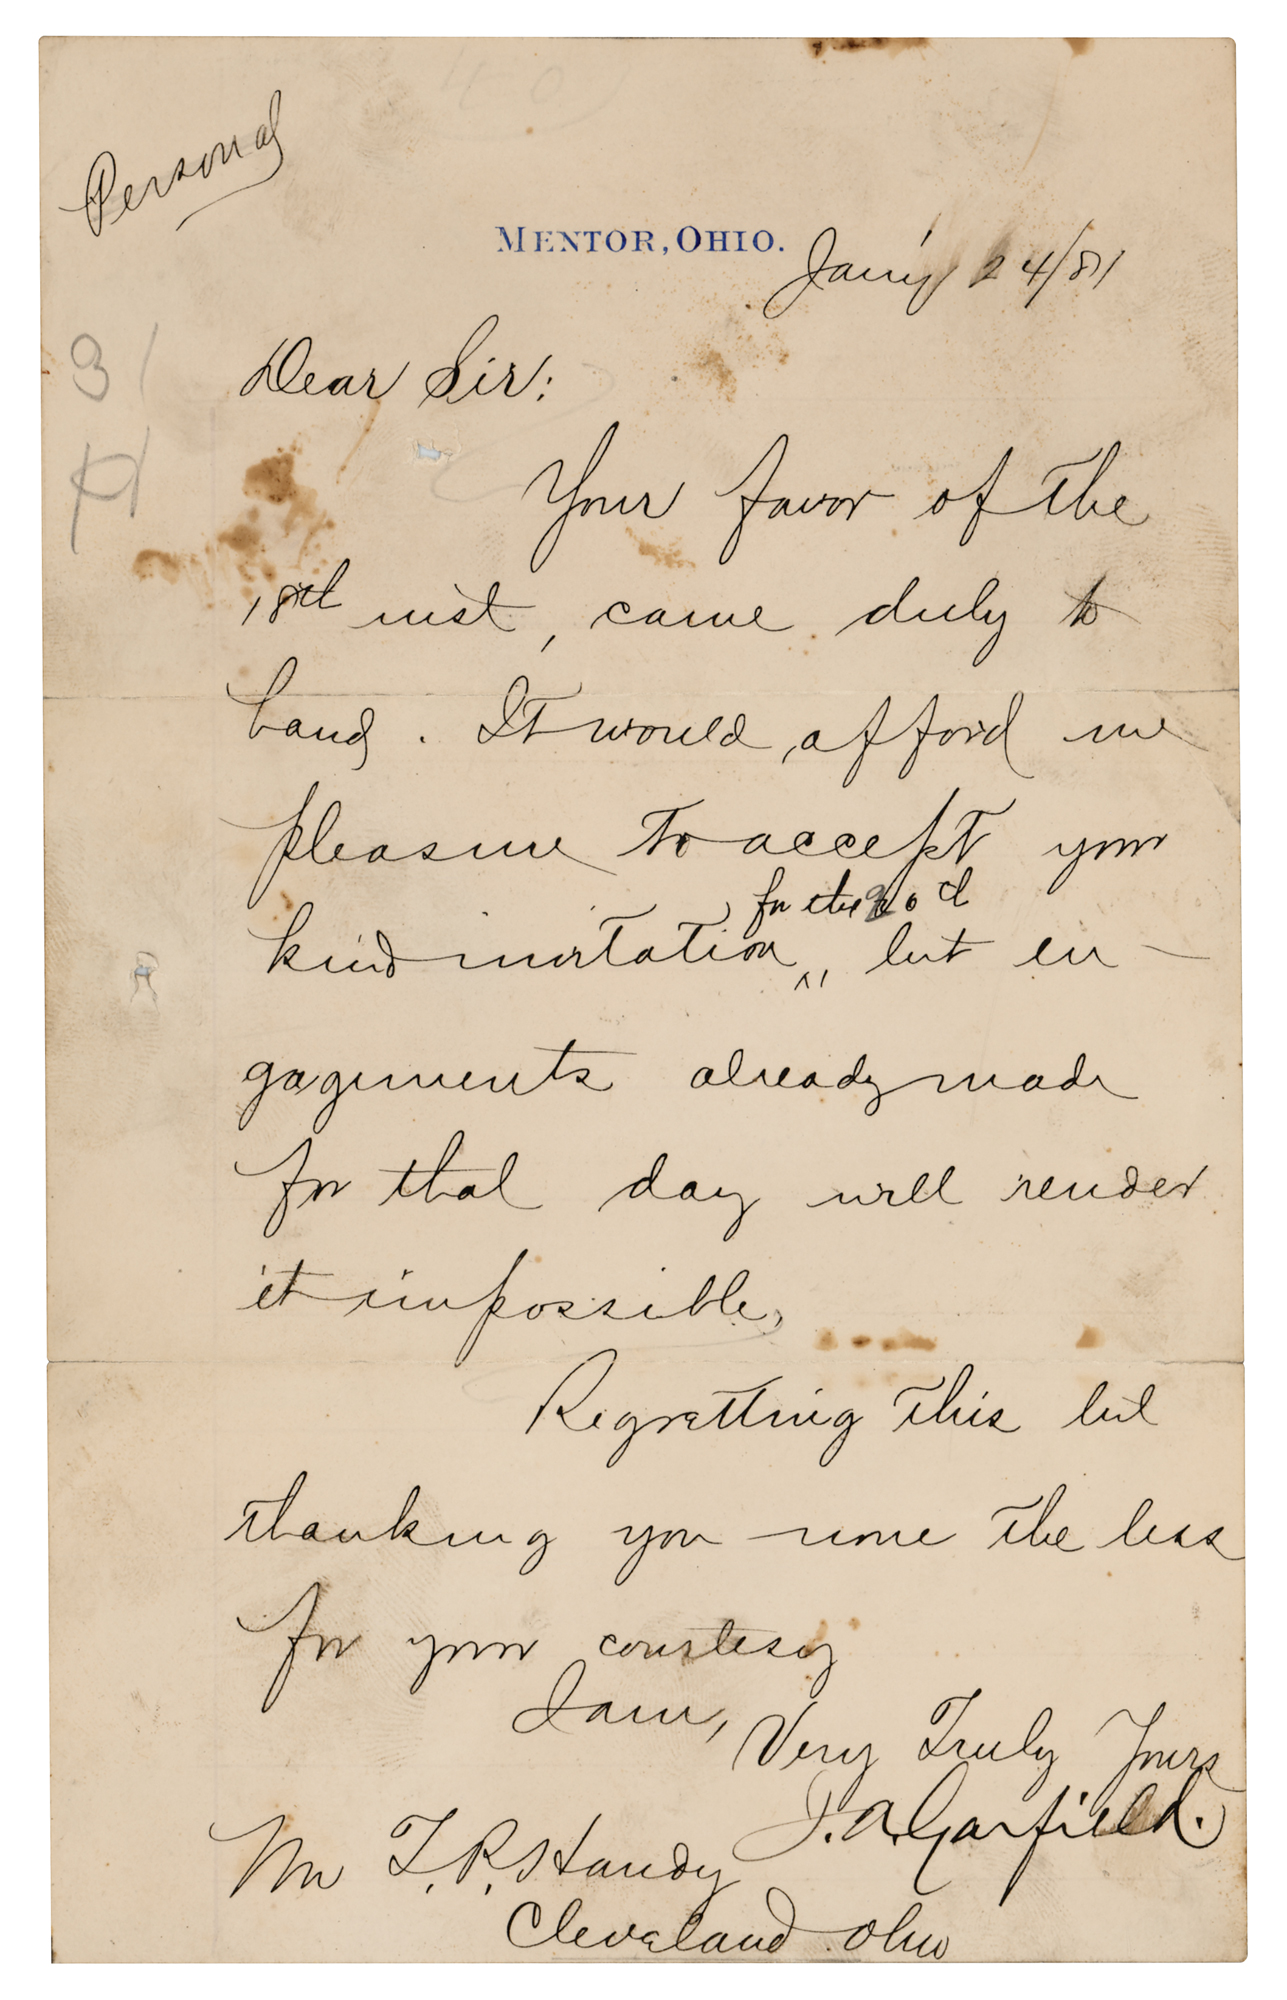 Personal
MENTOR, OHIO. Jan'y 24/81
Dear Sir:
Your favor of the
18th inst, came duly to
hand. It would afford me
pleasure to accept your
for the 20th
kind invitation, but en-
gagements already made
for that day will render
it impossible,
Regretting this but
thanking you none the less
for your courtesy
I am,
Very Truly Yours
J. A. Garfield.
Mr T. P. Handy
Cleveland Ohio